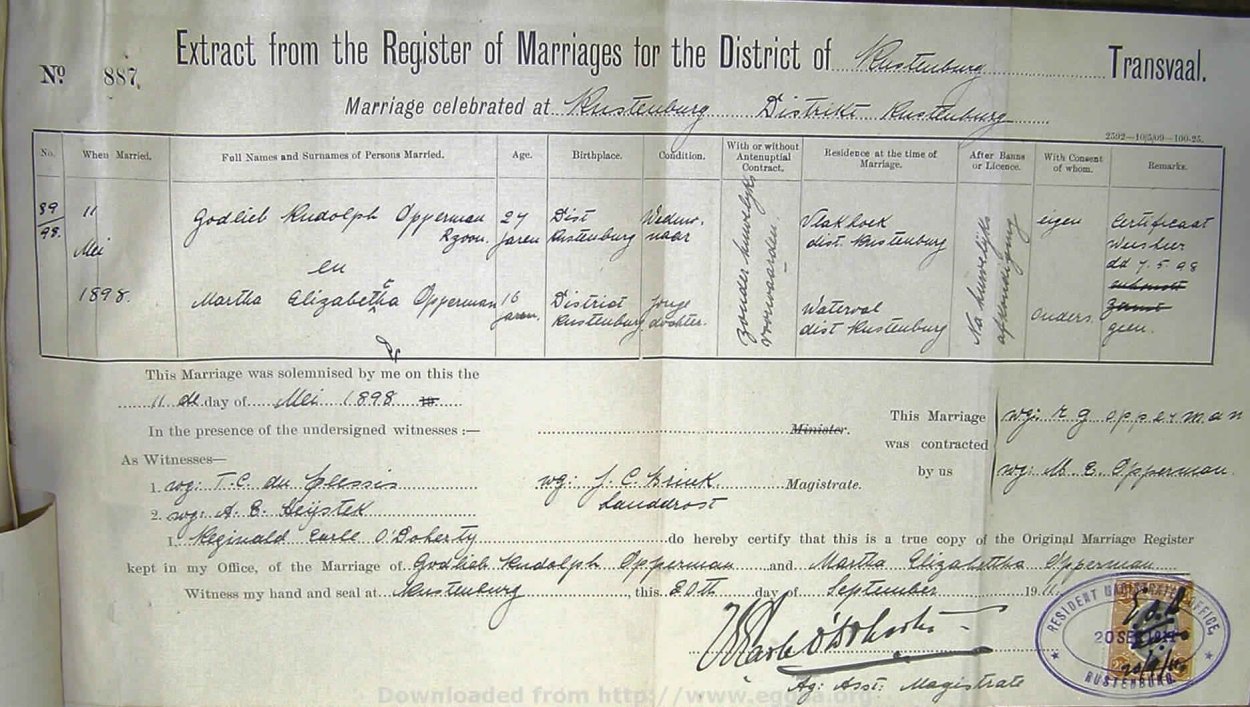 Extract from the Register of Marriages for the District of Rustenburg Transvaal.
No 887.
Marriage celebrated at Rustenburg Distrikt Rustenburg
2592—10/5/09—100-25.
No. When Married. Full Names and Surnames of Persons Married. Age. Birthplace. Condition. With or without Antenuptial Contract. Residence at the time of Marriage. After Banns or Licence. With Consent of whom. Remarks.
89/98. 11 Mei 1898.
Godlieb Rudolph Opperman Rzoon. 27 jaren Dist Rustenburg Weduwnaar Vlakhoek dist. Rustenburg eigen Certificaat Weesheer dd 7.5.98
en
Martha Elizabetha Opperman 16 jaren. District Rustenburg Jonge dochter. Waterval dist Rustenburg ouders. geen.
zonder huwelijks voorwaarden.
Na huwelijks afkondiging
This Marriage was solemnised by me on this the
11 de day of Mei 1898 19
In the presence of the undersigned witnesses :—
Minister.
This Marriage was contracted by us
wg: r g opperman
wg: M. E. Opperman.
As Witnesses—
1. wg: T. C. du Plessis
wg: J. C. Brink. Magistrate.
2. wg: A. E. Heystek
Landdrost
I, Reginald Earle O'Doherty do hereby certify that this is a true copy of the Original Marriage Register
kept in my Office, of the Marriage of Godlieb Rudolph Opperman and Martha Elizabettha Opperman
Witness my hand and seal at Rustenburg, this 20th day of September 1911.
O'Doherty
Ag: Asst: Magistrate
RESIDENT MAGISTRATE'S OFFICE,
20 SEP 1911
RUSTENBURG.
Downloaded from http://www.eggsa.org